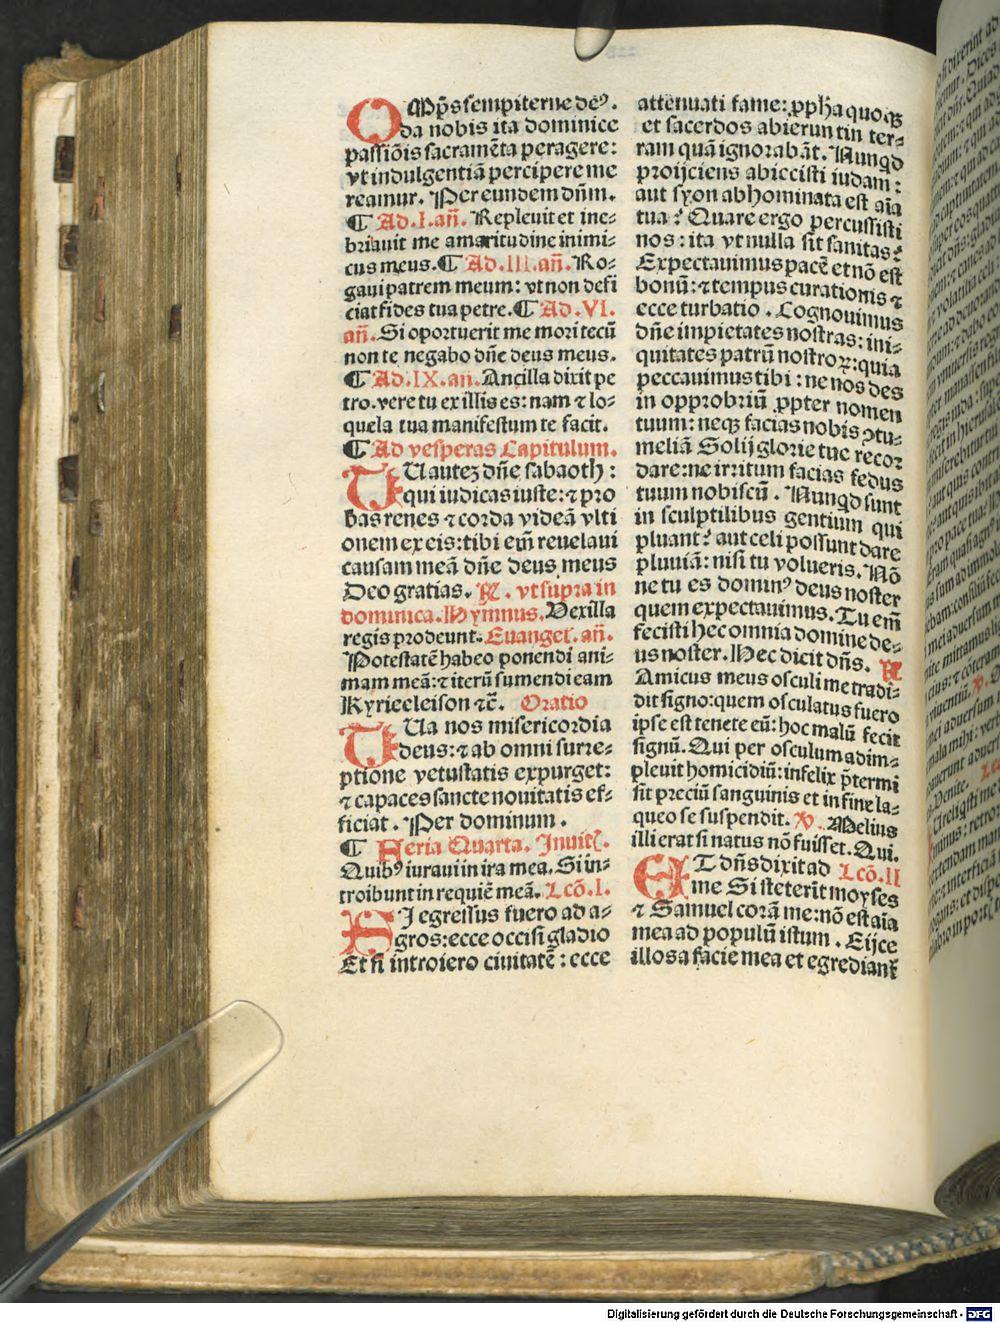 OMp̄s sempiterne deꝰ.
da nobis ita dominice
passiōis sacramēta peragere:
vt indulgentiā percipere me
reamur. Per eundem dn̄m.
¶ Ad .I. an̄. Repleuit et ine-
briauit me amaritudine inimi-
cus meus. ¶ Ad .III. an̄. Ro-
gaui patrem meum: vt non defi
ciat fides tua petre. ¶ Ad .VI.
an̄. Si oportuerit me mori tecū
non te negabo dn̄e deus meus.
¶ Ad .IX. an̄. Ancilla dixit pe
tro. vere tu ex illis es: nam ⁊ lo-
quela tua manifestum te facit.
¶ Ad vesperas Capitulum.
TU autez dn̄e sabaoth:
qui iudicas iuste: ⁊ pro
bas renes ⁊ corda videā vlti
onem ex eis: tibi em̄ reuelaui
causam meā dn̄e deus meus
Deo gratias. ℟. vt supra in
dominica. Hymnus. Vexilla
regis prodeunt. Euangel. an̄.
Potestatē habeo ponendi ani-
mam meā: ⁊ iterū sumendi eam
Kyrieeleison ⁊c̄. Oratio
TUa nos misericordia
deus: ⁊ ab omni surre-
ptione vetustatis expurget:
⁊ capaces sancte nouitatis ef-
ficiat. Per dominum.
¶ Feria Quarta. Inuit̉.
Quibꝰ iuraui in ira mea. Si in-
troibunt in requiē meā. Lcō. I.
SI egressus fuero ad a-
gros: ecce occisi gladio
Et si introiero ciuitatē: ecce
attenuati fame: ꝓpha quoqꝫ
et sacerdos abierunt in ter-
ram quā ignorabāt. Nunqd
proijciens abiecisti iudam:
aut syon abhominata est aīa
tua? Quare ergo percussisti
nos: ita vt nulla sit sanitas?
Expectauimus pacē et nō est
bonū: ⁊ tempus curationis ⁊
ecce turbatio. Cognouimus
dn̄e impietates nostras: ini-
quitates patrū nostroꝝ: quia
peccauimus tibi: ne nos des
in opprobriū ꝓpter nomen
tuum: neqꝫ facias nobis ꝯtu-
meliā Solij glorie tue recor
dare: ne irritum facias fedus
tuum nobiscū. Nunqd sunt
in sculptilibus gentium qui
pluant? aut celi possunt dare
pluuiā: nisi tu volueris. Nō
ne tu es dominꝰ deus noster
quem expectauimus. Tu em̄
fecisti hec omnia domine de-
us noster. Hec dicit dn̄s. ℟
Amicus meus osculi me tradi-
dit signo: quem osculatus fuero
ipse est tenete eū: hoc malū fecit
signū. Qui per osculum adim-
pleuit homicidiū: infelix p̄termi
sit preciū sanguinis et in fine la-
queo se suspendit. ℣. Melius
illi erat si natus nō fuisset. Qui.
ET dn̄s dixit ad Lcō. II
me Si steterīt moyses
⁊ Samuel corā me: nō est aīa
mea ad populū istum. Eijce
illos a facie mea et egrediant̉
Digitalisierung gefördert durch die Deutsche Forschungsgemeinschaft - DFG